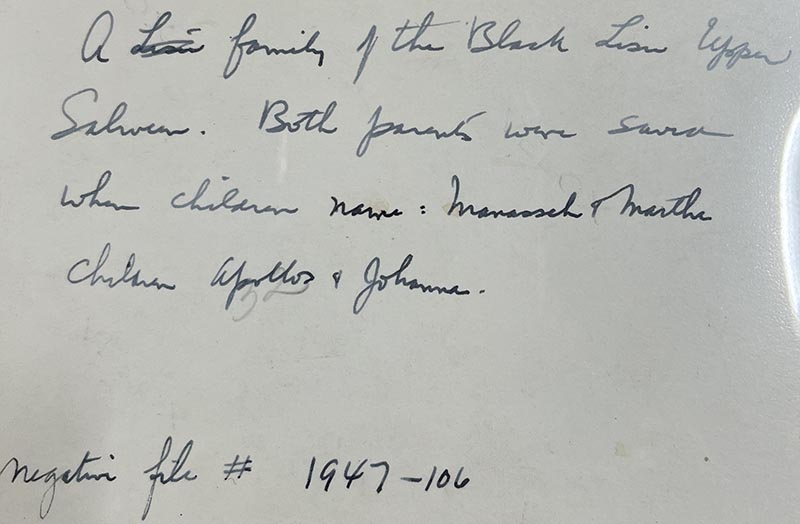 A Lisu family of the Black Lisu Upper
Salween. Both parents were saved
when children name: Manasseh & Martha
Children Apollos & Johanna.
negative file # 1947-106